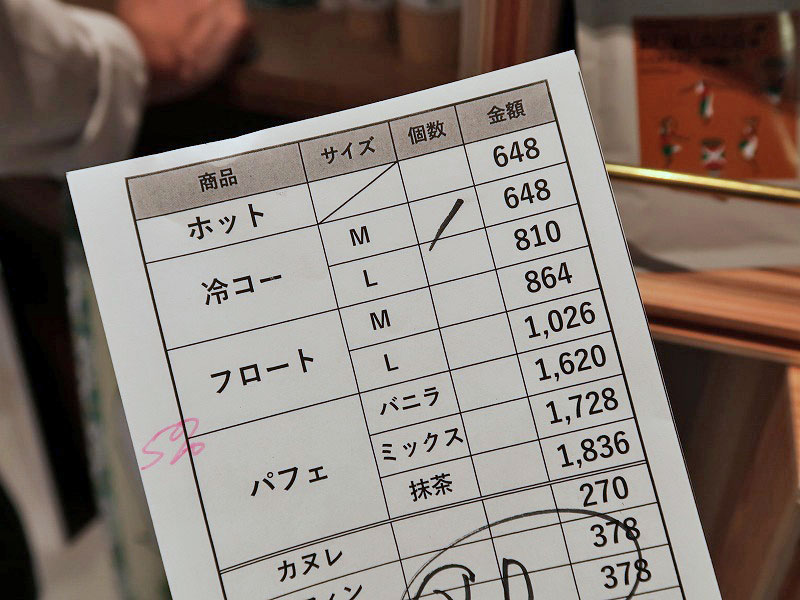 商品 サイズ 個数 金額
ホット 648
冷コー M / 648
L 810
フロート M 864
L 1,026
パフェ バニラ 1,620
ミックス 1,728
抹茶 1,836
カヌレ 270
378
378
5%